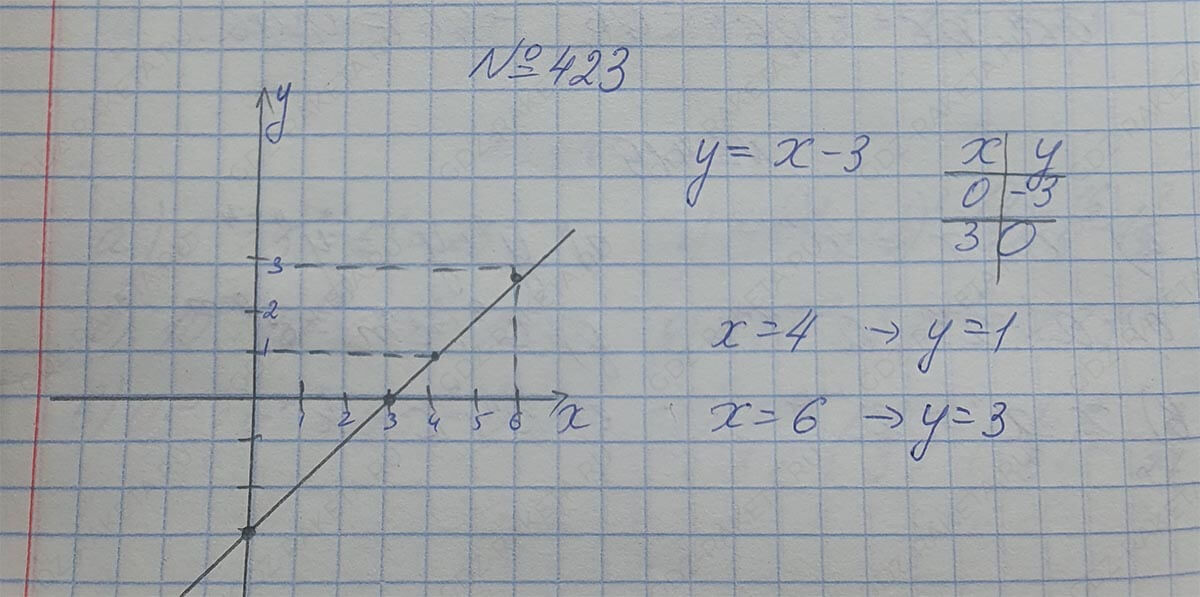 № 423
y
y = x - 3
x y
0 -3
3 0
3
2
1
1 2 3 4 5 6 x
x = 4 → y = 1
x = 6 → y = 3